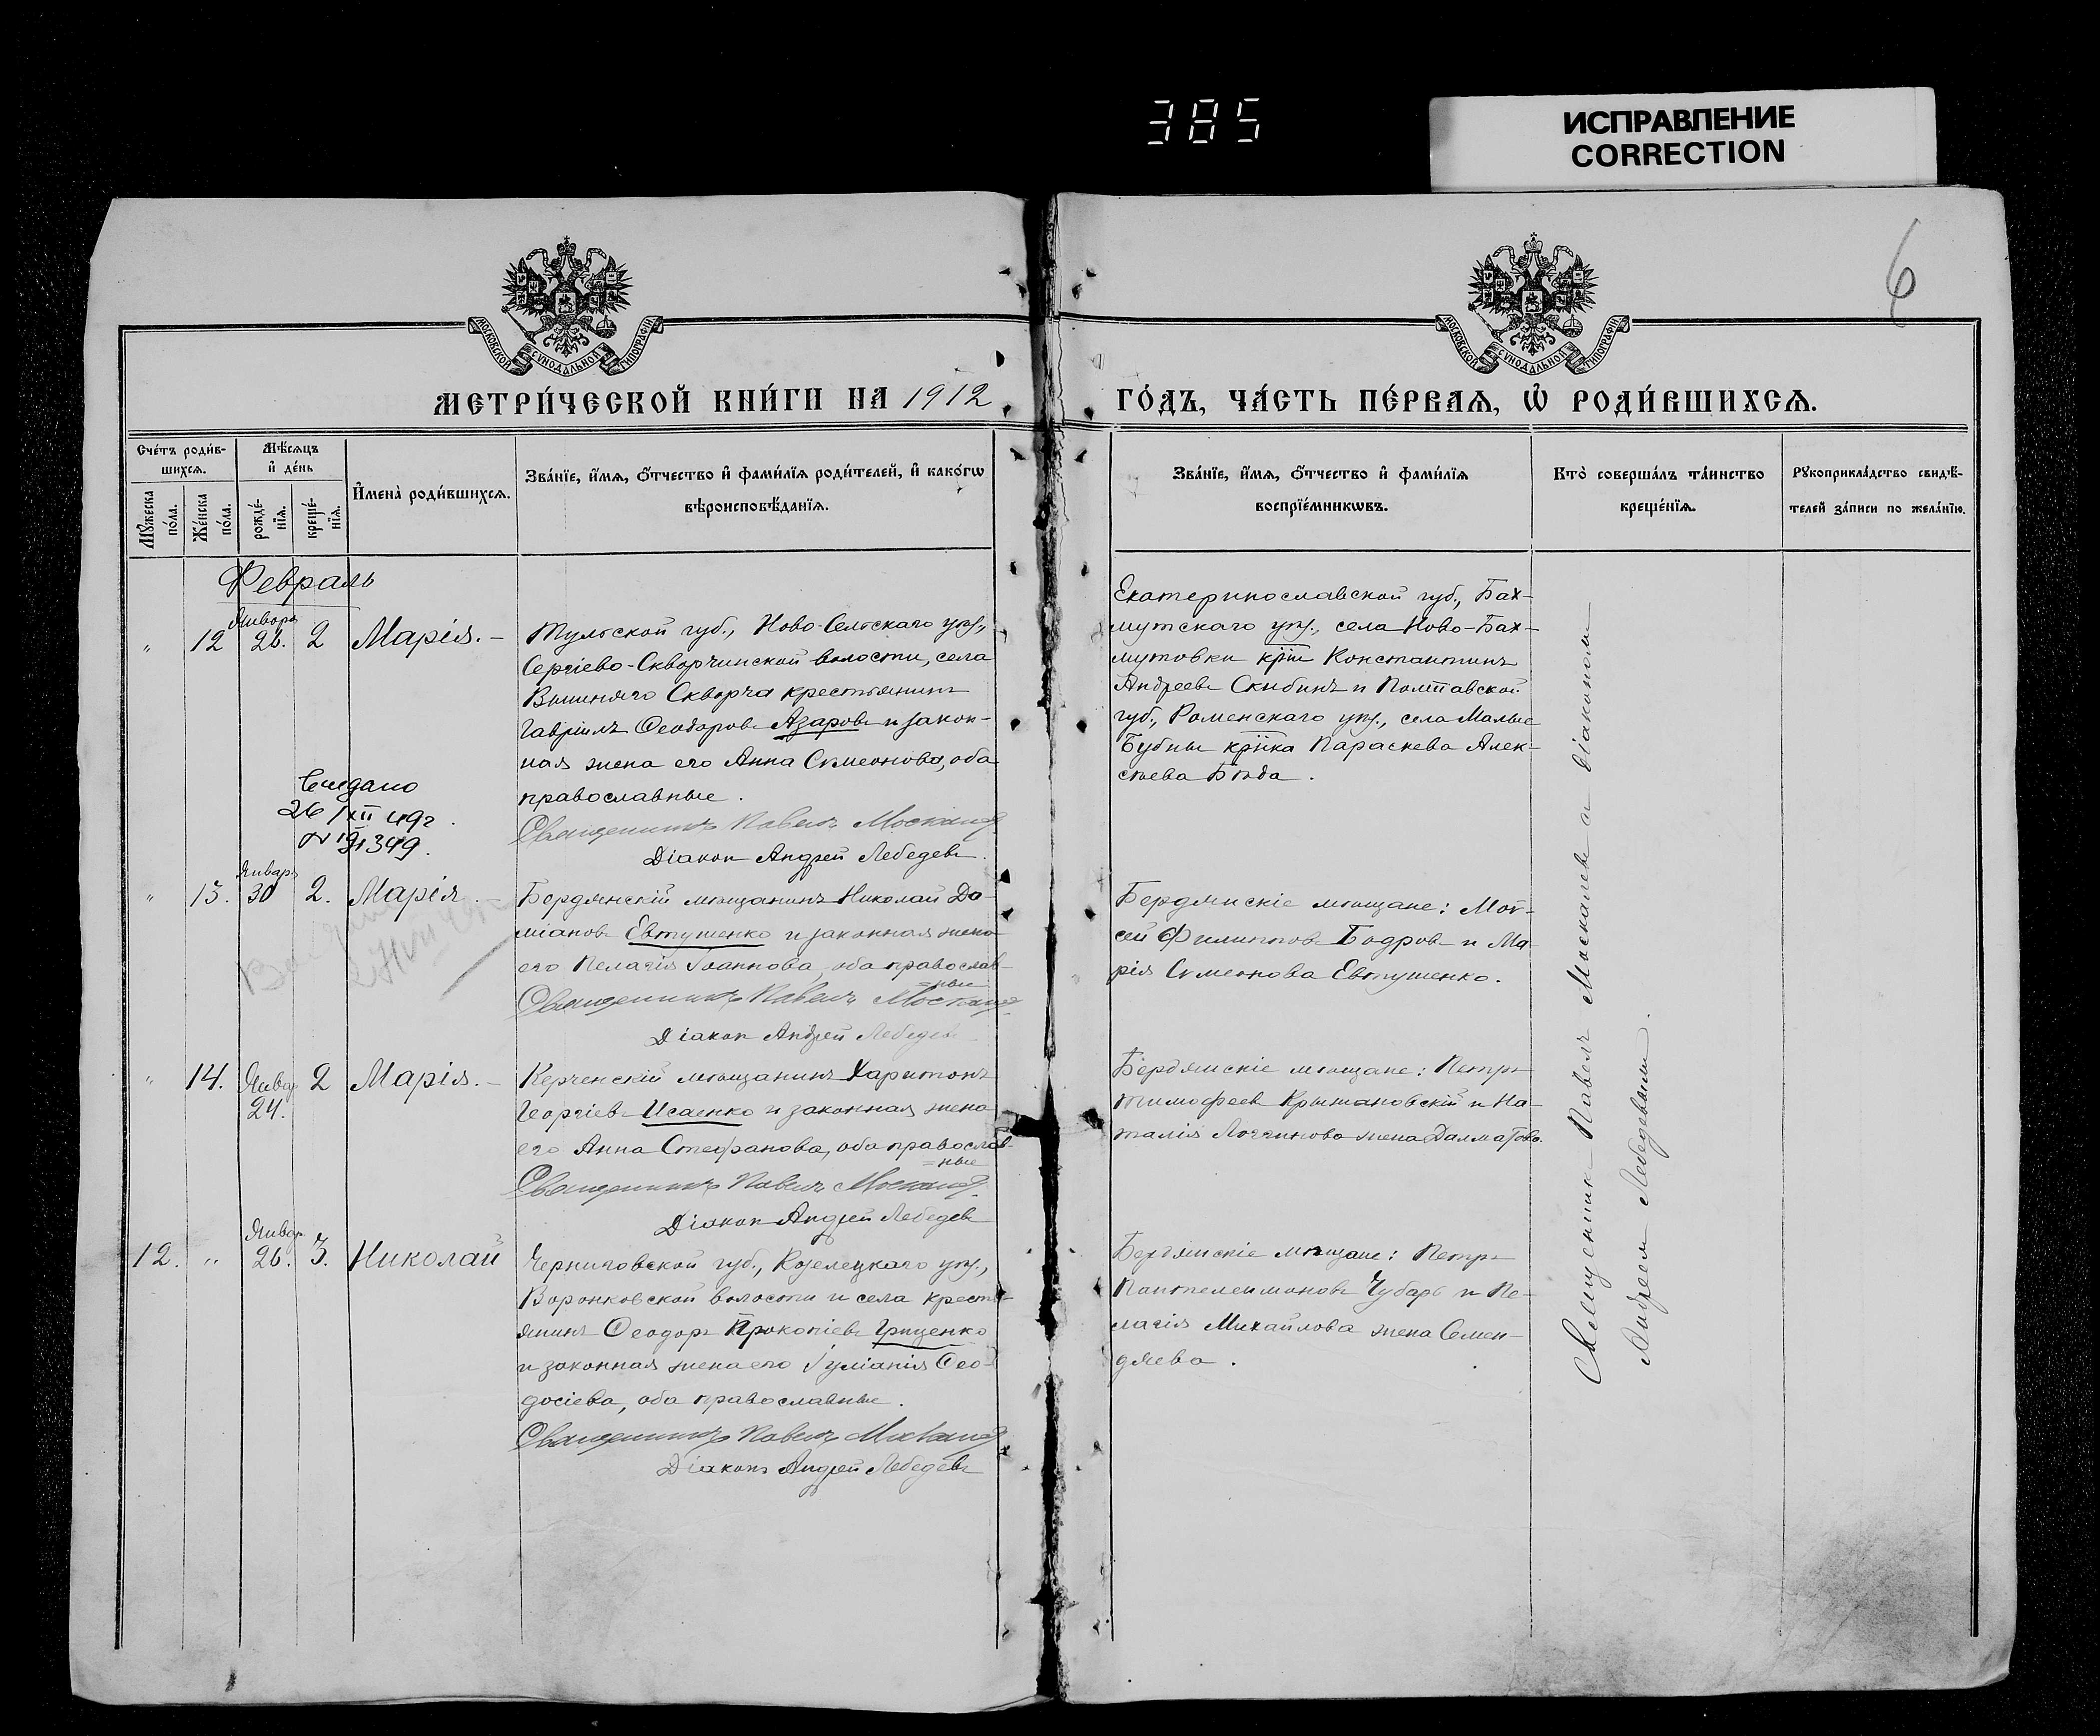 385
ИСПРАВЛЕНИЕ
CORRECTION
6
МОСКОВСКОЙ СѴНОДАЛЬНОЙ ТИПОГРАФІИ
МОСКОВСКОЙ СѴНОДАЛЬНОЙ ТИПОГРАФІИ
МЕТРИ́ЧЕСКОЙ КНИ́ГИ НА 1912
ГО́ДЪ, ЧА́СТЬ ПЕ́РВАЯ, Ѡ҆ РОДИ́ВШИХСЯ.
Сче́тъ роди́в-
шихся.
Мѣ́сяцъ
и҆ де́нь
Мꙋ́жеска
по́ла.
Же́нска
по́ла.
рожде́-
нїя.
креще́-
нїя.
И҆мена̀ роди́вшихся.
Зва́нїе, и҆́мя, ѻ҆́тчество и҆ фами́лїя роди́телей, и҆ како́гѡ
вѣроисповѣ́данїя.
Зва́нїе, и҆́мя, ѻ҆́тчество и҆ фами́лїя
воспрїе́мникѡвъ.
Кто̀ соверша́лъ та́инство
креще́нїя.
Рꙋкоприкла́дство свидѣ́-
телей за́писи по жела́нїю.
Февраль
Января
" 12 26. 2 Марія. –
Тульской губ., Ново-Сельскаго уѣз.,
Сергіево-Скворчинской волости, села
Вышняго Скворча крестьянинъ
Гавріилъ Ѳеодоровъ Азаровъ и закон-
ная жена его Анна Сѵмеонова, оба
православные.
Священникъ Павелъ Москалевъ
Діакон Андрей Лебедевъ.
Екатеринославской губ., Бах-
мутскаго уѣз., села Ново-Бах-
мутовки кр̅нъ Константинъ
Андреевъ Скибинъ и Полтавской
губ., Роменскаго уѣз., села Малые
Бубны кр̅нка Параскева Алек-
сѣева Бѣда.
Выдано
26/XII 49г.
349.
Январ.
" 13. 30 2. Марія. –
Бердянскій мѣщанинъ Николай До-
міановъ Евтушенко и законная жена
его Пелагія Іоаннова, оба православ-
=ные
Священникъ Павелъ Москалевъ
Діакон Андрей Лебедев
Бердянскіе мѣщане: Мои-
сей Филипповъ Бодровъ и Ма-
рія Сѵмеонова Евтушенко.
" 14. Январ 2 Марія. –
24.
Керченскій мѣщанинъ Харитонъ
Георгіевъ Исаенко и законная жена
его Анна Стефанова, оба православ-
=ные
Священникъ Павелъ Москалевъ
Діакон Андрей Лебедевъ
Бердянскіе мѣщане: Петръ
Тимофеев Крыжановскій и На-
талія Логгинова жена Далматова.
Январ.
12. " 26. 3. Николай
Черниговской губ., Козелецкаго уѣз.,
Воронковской волости и села кресть-
янинъ Ѳеодоръ Прокопіевъ Гриценко
и законная жена его Іуліанія Ѳео-
досіева, оба православные.
Священникъ Павелъ Москалевъ
Діаконъ Андрей Лебедевъ
Бердянскіе мѣщане: Петръ
Пантелеимоновъ Чубарь и Пе-
лагія Михайлова жена Семен-
дяева.
Священник Павелъ Москалевъ с діакономъ
Андреем Лебедевымъ.